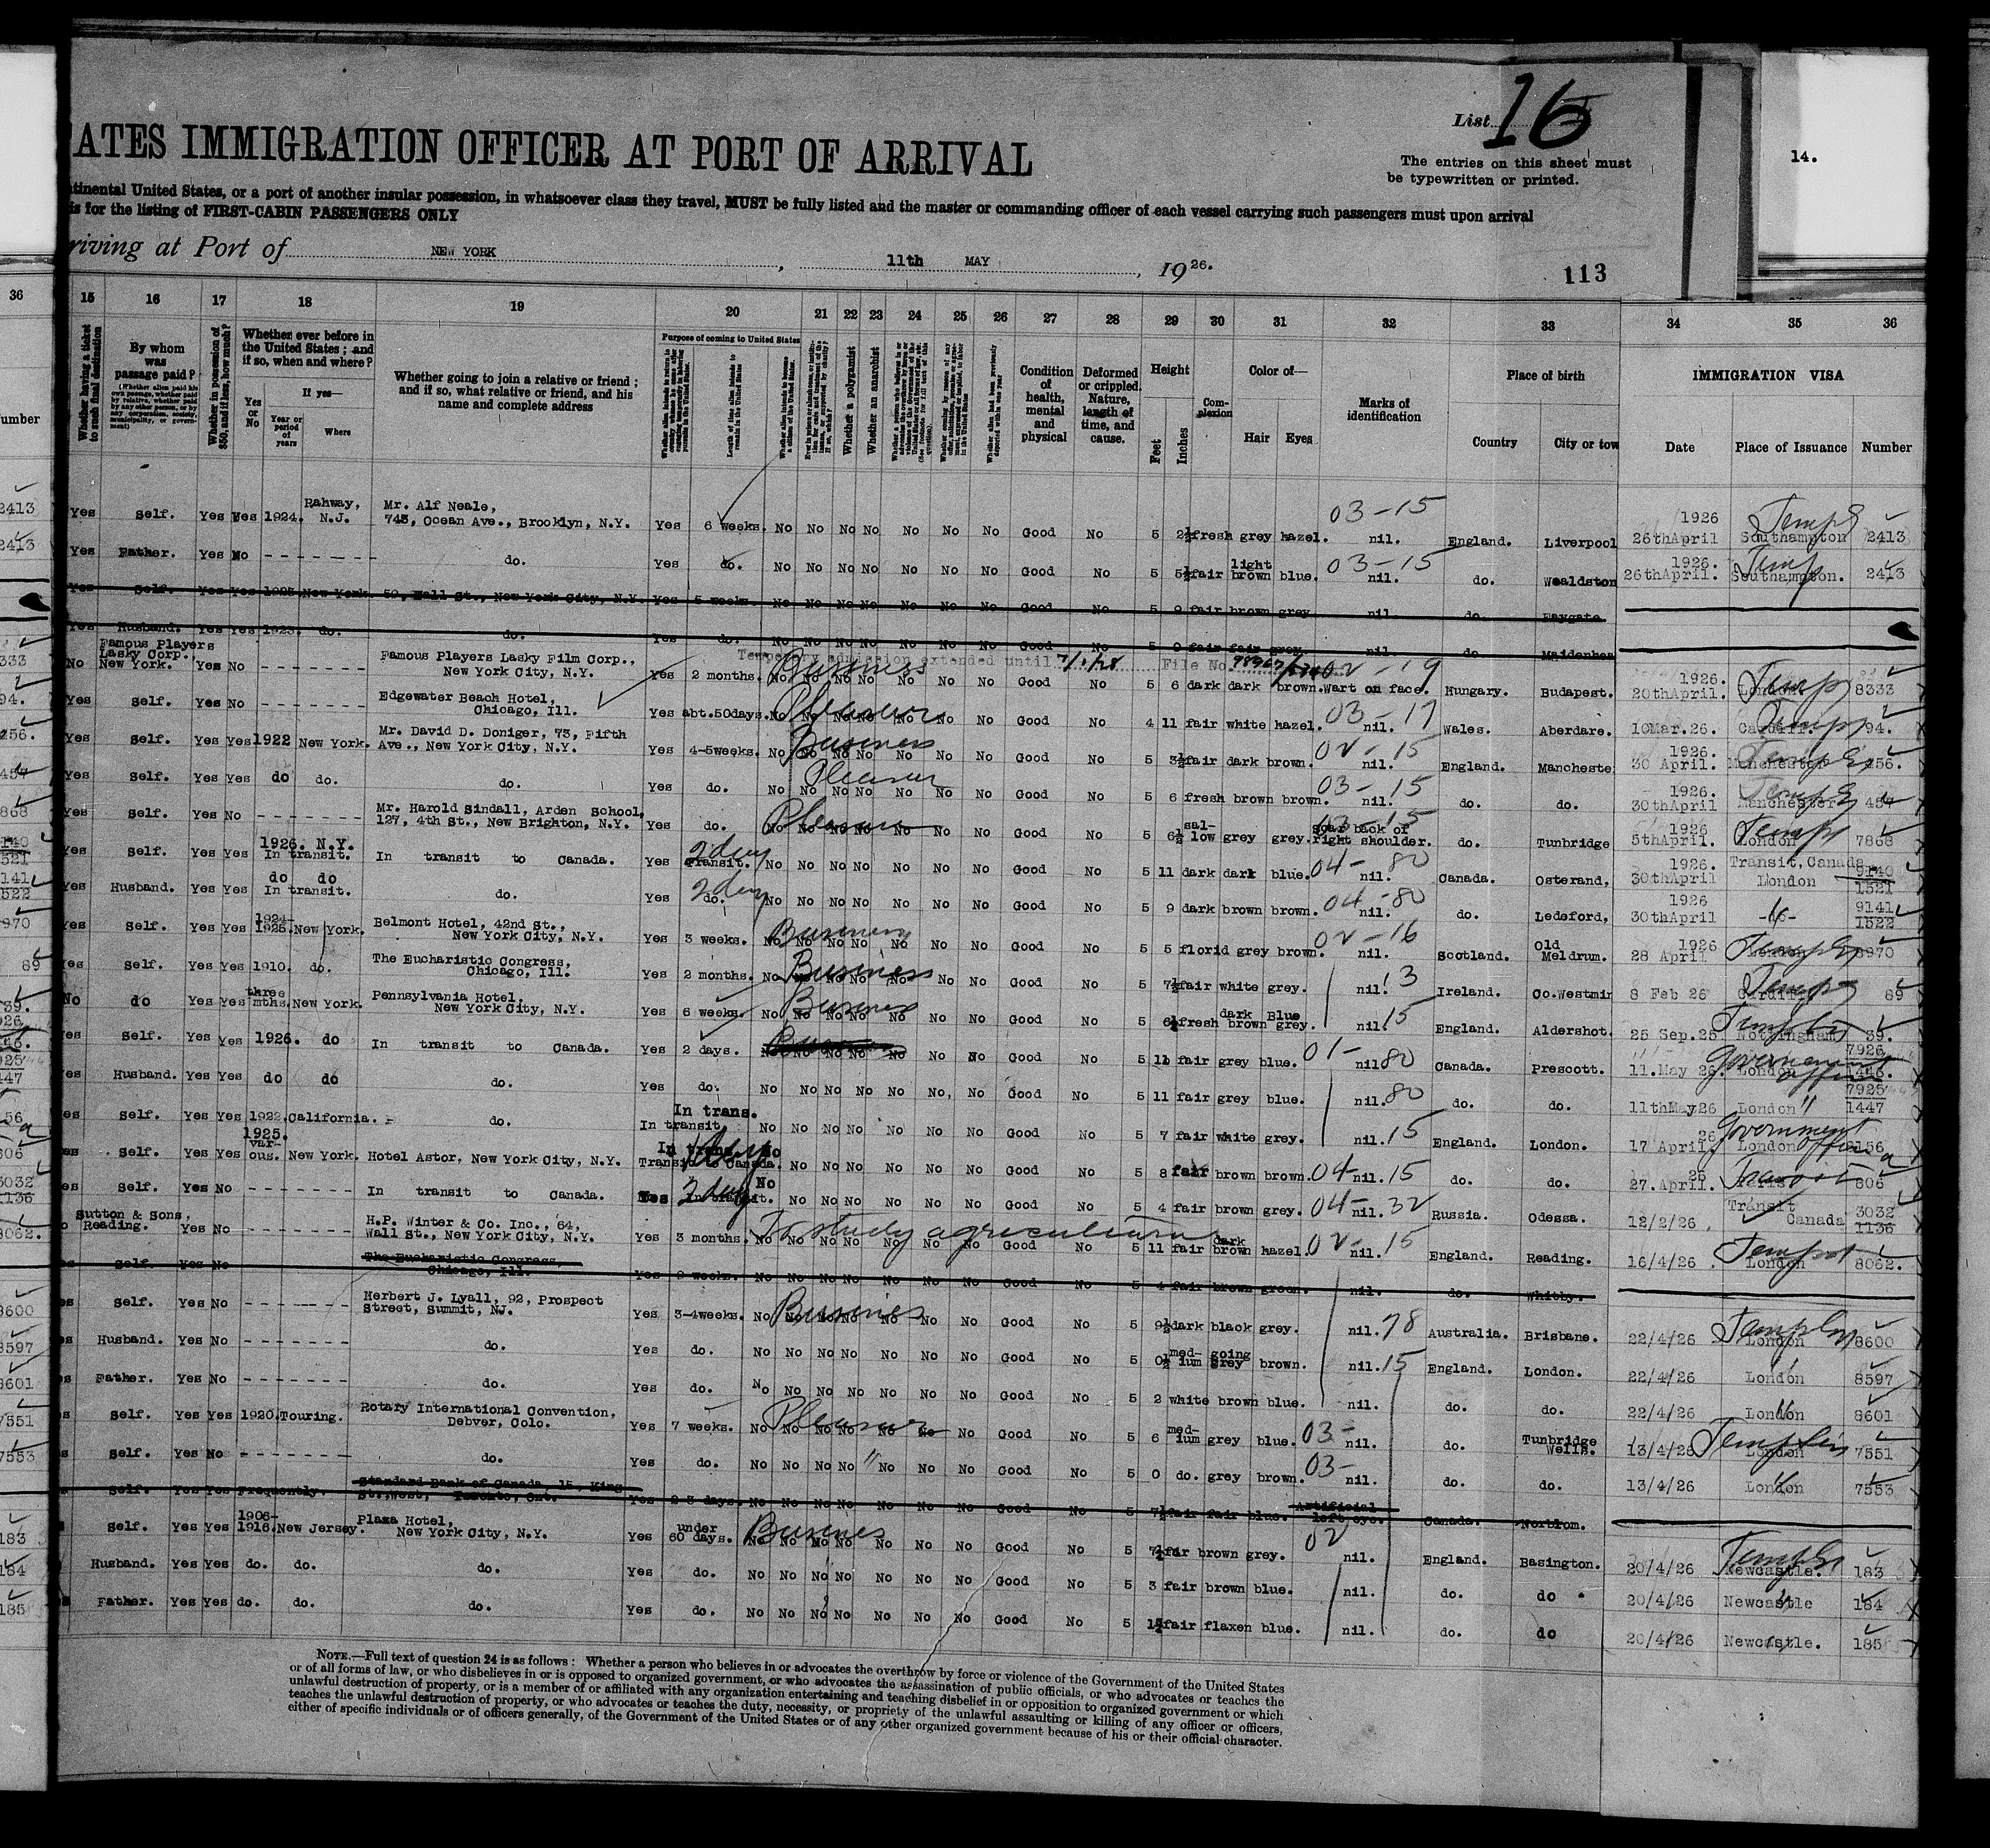 List 16
ATES IMMIGRATION OFFICER AT PORT OF ARRIVAL
The entries on this sheet must
be typewritten or printed.
14.
tinental United States, or a port of another insular possession, in whatsoever class they travel, MUST be fully listed and the master or commanding officer of each vessel carrying such passengers must upon arrival
is for the listing of FIRST-CABIN PASSENGERS ONLY
riving at Port of NEW YORK, 11th MAY, 1926.
113
36 15 16 17 18 19 20 21 22 23 24 25 26 27 28 29 30 31 32 33 34 35 36
Whether having a ticket to such final destination
By whom was passage paid?
Whether in possession of $50, and if less, how much?
Whether ever before in the United States; and if so, when and where?
Yes or No
If yes—
Year or period of years
Where
Whether going to join a relative or friend; and if so, what relative or friend, and his name and complete address
Purpose of coming to United States
Whether a polygamist
Whether an anarchist
Condition of health, mental and physical
Deformed or crippled. Nature, length of time, and cause.
Height
Feet
Inches
Complexion
Color of—
Hair
Eyes
Marks of identification
Place of birth
Country
City or tow
IMMIGRATION VISA
Date
Place of Issuance
Number
Yes Self. Yes Yes 1924. Rahway, N.J. Mr. Alf Neale, 745, Ocean Ave., Brooklyn, N.Y. Yes 6 weeks. No No No No No No No Good No 5 2½ fresh grey hazel. 03-15 nil. England. Liverpool 1926 26thApril Southampton 2413
Yes Father. Yes No - - - - - - - do. Yes do. No No No No No No No Good No 5 5½ fair light brown blue. 03-15 nil. do. Wealdston 1926. 26thApril. Southampton. 2413
Yes Self. Yes Yes 1925 New York 59, Wall St., New York City, N.Y. Yes 5 weeks. No No No No No No No Good No 5 9 fair brown grey. nil. do. Faygate.
Yes Husband. Yes Yes 1923. do. do. Yes do. No No No No No No No Good No 5 0 fair fair grey. nil. do Maidenhea
Temporary admission extended until 7/1/28 File No.
No Famous Players Lasky Corp., New York. Yes No - - - - - - - Famous Players Lasky Film Corp., New York City, N.Y. Yes 2 months. Business No No No No No No No Good No 5 6 dark dark brown. 02-19 Wart on face. Hungary. Budapest. 1926. 20thApril. London 8333
Yes Self. Yes No - - - - - - - Edgewater Beach Hotel, Chicago, Ill. Yes abt.50days. Pleasure No No No No No No No Good No 4 11 fair white hazel. 03-17 nil. Wales. Aberdare. 10Mar.26. Cardiff. 94.
Yes Self. Yes Yes 1922 New York. Mr. David D. Doniger, 73, Fifth Ave., New York City, N.Y. Yes 4-5weeks. Business No No No No No No No Good No 5 3½ fair dark brown. 02-15 nil. England. Mancheste 1926. 30 April. Manchester 456.
Yes Self. Yes Yes do do. do. Yes do. Pleasure No No No No No No No Good No 5 6 fresh brown brown. 03-15 nil. do. do. 1926. 30thApril Manchester 457
Yes Self. Yes No - - - - - - - Mr. Harold Sindall, Arden School, 127, 4th St., New Brighton, N.Y. Yes do. Pleasure No No No No No No No Good No 5 6½ sal- low grey grey. Scar back of right shoulder. do. Tunbridge 1926 5thApril. London 7868
Yes Self. Yes Yes 1926. N.Y. In transit. In transit to Canada. Yes 2 day Transit. No No No No No No No Good No 5 11 dark dark blue. 04-80 nil. Canada. Osterand, 1926. 30thApril Transit, Canada London 9140 1521
Yes Husband. Yes Yes do do In transit. do. Yes 2 day do. No No No No No No No Good No 5 9 dark brown brown. 04-80 nil. do. Ledsford, 1926 30thApril 9141 1522
Yes Self. Yes Yes 1924- 1925. New York. Belmont Hotel, 42nd St., New York City, N.Y. Yes 3 weeks. Business No No No No No No No Good No 5 5 florid grey brown. 02-16 nil. Scotland. Old Meldrum. 1926 28 April London 8970
Yes Self. Yes Yes 1910. do. The Eucharistic Congress, Chicago, Ill. Yes 2 months. Business No No No No No No No Good No 5 7½ fair white grey. nil. 13 Ireland. Co.Westmin 8 Feb 26 Cardiff 89
No do Yes Yes three mths. New York. Pennsylvania Hotel, New York City, N.Y. Yes 6 weeks. Business No No No No No No No Good No 5 6½ fresh dark brown Blue grey. nil. 15 England. Aldershot. 25 Sep.25 Nottingham 39.
Yes Self. Yes Yes 1926. do In transit to Canada. Yes 2 days. No No No No No No No Good No 5 11 fair grey blue. 01- nil 80 Canada. Prescott. 11.May 26. London 7926 1446.
Yes Husband. Yes Yes do do do. Yes do. No No No No No No No Good No 5 11 fair grey blue. nil. 80 do. do. 11thMay26 London 7925 1447
es Self. Yes Yes 1922. California. do. In trans. In transit. No No No No No No No Good No 5 7 fair white grey. nil. 15 England. London. 17 April 26 London Government office 9156
es Self. Yes Yes 1925. var- ous. New York. Hotel Astor, New York City, N.Y. Transit Canada. No No No No No No No Good No 5 8 fair brown brown. 04- nil. 15 do. do. 27.April. 26 806
es Self. Yes No - - - - - - - In transit to Canada. Yes No 2 day In transit. No No No No No No No Good No 5 4 fair brown grey. 04- nil. 32 Russia. Odessa. 12/2/26 Transit Canada 3032 1136
o Sutton & Sons, Reading. Yes No - - - - - - - H.P. Winter & Co. Inc., 64, Wall St., New York City, N.Y. Yes 3 months. To study agriculture No No No No No No No Good No 5 11 fair dark brown hazel. 02- nil. 15 England. Reading. 16/4/26 London 8062.
s Self. Yes No The Eucharistic Congress, Chicago, Ill. Yes 9 weeks. No No No No No No No Good No 5 4 fair brown green. nil. do. Whitby.
s Self. Yes No - - - - - - - Herbert J. Lyall, 92, Prospect Street, Summit, NJ. Yes 3-4weeks. Business No No No No No No No Good No 5 9½ dark black grey. nil. 78 Australia. Brisbane. 22/4/26 London 8600
s Husband. Yes No - - - - - - - do. Yes do. No No No No No No No Good No 5 0½ med- ium going Grey brown. nil. 15 England. London. 22/4/26 London 8597
s Father. Yes No - - - - - - - do. Yes do. No No No No No No No Good No 5 2 white brown blue. nil. do. do. 22/4/26 London 8601
s Self. Yes Yes 1920. Touring. Rotary International Convention, Debver, Colo. Yes 7 weeks. Pleasure No No No No No No No Good No 5 6 med- ium grey blue. 03- nil. do. Tunbridge Wells. 13/4/26 London 7551
s Self. Yes No - - - - - - - do. Yes do. No No No No No No No Good No 5 0 do. grey brown. 03- nil. do. do. 13/4/26 London 7553
s Self. Yes Yes Frequently. Standard Bank of Canada, 15, King St.,West, Toronto, Ont. Yes 2-3 days. No No No No No No No Good No 5 7½ fair fair blue. Artificial left eye. Canada. Norblom.
Self. Yes Yes 1906- 1916. New Jersey. Plaza Hotel, New York City, N.Y. Yes under 60 days. Business No No No No No No No Good No 5 7½ fair brown grey. 02 nil. England. Basington. 20/4/26 Newcastle. 183
Husband. Yes Yes do. do. do. Yes do. No No No No No No No Good No 5 3 fair brown blue. nil. do. do 20/4/26 Newcastle 184
Father. Yes Yes do. do. do. Yes do. No No No No No No No Good No 5 1½ fair flaxen blue. nil. do. do 20/4/26 Newcastle. 185
NOTE.—Full text of question 24 is as follows: Whether a person who believes in or advocates the overthrow by force or violence of the Government of the United States
or of all forms of law, or who disbelieves in or is opposed to organized government, or who advocates the assassination of public officials, or who advocates or teaches the
unlawful destruction of property, or is a member of or affiliated with any organization entertaining and teaching disbelief in or opposition to organized government or which
teaches the unlawful destruction of property, or who advocates or teaches the duty, necessity, or propriety of the unlawful assaulting or killing of any officer or officers,
either of specific individuals or of officers generally, of the Government of the United States or of any other organized government because of his or their official character.